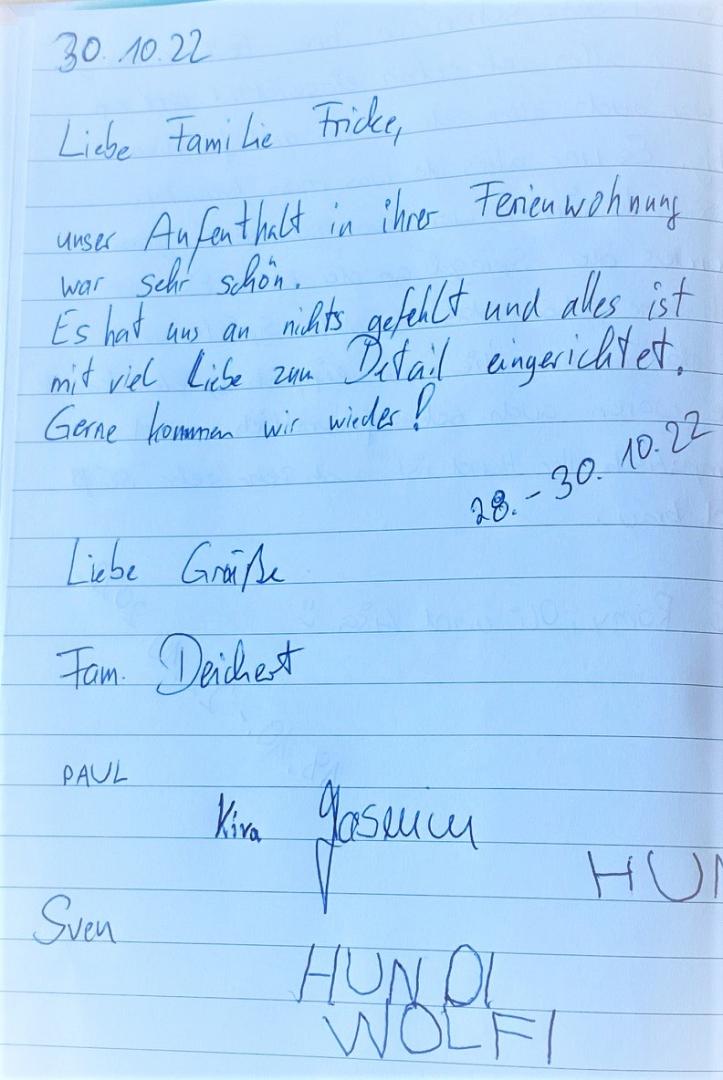 30.10.22
Liebe Familie Fricke,
unser Aufenthalt in ihrer Ferienwohnung
war sehr schön.
Es hat uns an nichts gefehlt und alles ist
mit viel Liebe zum Detail eingerichtet.
Gerne kommen wir wieder!
28.-30.10.22
Liebe Grüße
Fam. Deichert
PAUL
Kira Jasmin
HUN
Sven
HUNDI
WOLFI